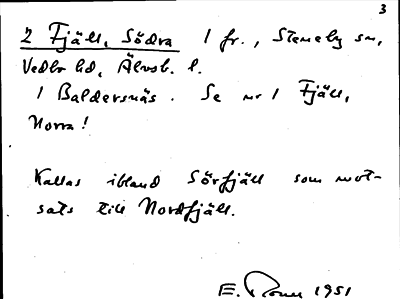 3
2 Fjäll, Södra 1 fr., Steneby sn,
Vedbo hd, Älvsb. l.
1 Baldersnäs. Se nr 1 Fjäll,
Norra!
Kallas ibland Sörfjäll som mot-
sats till Nordfjäll.
E. 1951